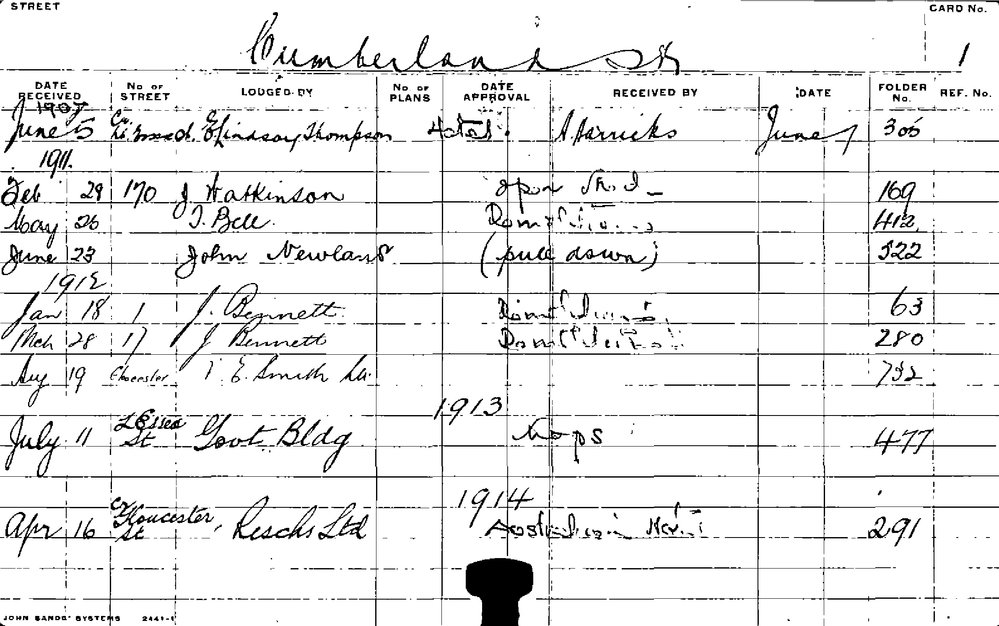 STREET CARD No.
Cumberland St 1
DATE RECEIVED No OF STREET LODGED BY No OF PLANS DATE APPROVAL RECEIVED BY DATE FOLDER No. REF. No.
1907
June 5 Lindsay Thompson June 7 305
1911.
Feb 28 170 J Hatkinson open 169
May 26 T. Bell. 412
June 23 John Newland (pull down) 522
1912
Jan 18 1 J. Bennett. 63
Mch 28 17 J Bennett 280
Aug 19 Gloucester E. Smith Ltd 732
1913
July 11 Essex St Govt Bldg 477
1914
Apr 16 Cr Gloucester St Reschs Ltd Australian 291
JOHN SANDS' SYSTEMS 2441-1